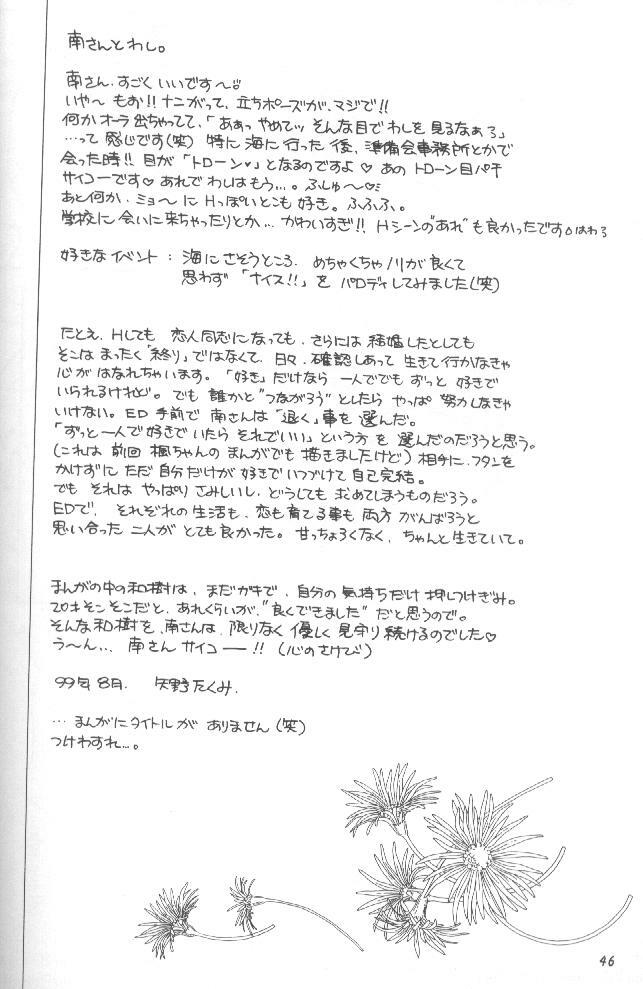 南さんとわし。
南さん、すごくいいです〜
いや〜 もお!! ナニがって、立ちポーズが、マジで!!
何かオーラ出ちゃってて、「あぁっ やめてッ そんな目でわしを見るなぁろ」
…って 感じです(笑) 特に 海に 行った 後、準備会事務所とかで
会った時!! 目が 「トローン♥」となるのですよ♡ あの トローン目パチ
サイコーです♡ あれで わしはもう…。ふしゅ〜♡
あと何か、ミョ〜に Hっぽいとこも 好き。ふふふ、。
学校に 会いに来ちゃったりとか… かわいすぎ!! Hシーンの"あれ"も良かったです
好きなイベント : 海に さそうところ. めちゃくちゃ ノリが 良くて
思わず 「ナイス!!」を パロディしてみました(笑)
たとえ、Hしても 恋人同志になっても、さらには 結婚したとしても
そこは まったく「終り」ではなくて、日々、確認しあって 生きて行かなきゃ
心が はなれちゃいます。「好き」だけなら 一人ででも ずっと 好きで
いられるけれど。でも 誰かと"つながろう"としたら やっぱ 努力しなきゃ
いけない。ED 手前で 南さんは「退く」事を 選んだ。
「ずっと一人で好きで いたら それでいい」という方 を 選んだのだろうと思う。
(これは 前回 楓ちゃんの まんがでも 描きましたけど) 相手に、フタンを
かけずに ただ 自分だけが 好きで いつづけて 自己完結。
でも それは やっぱり さみしいし、どうしても 求めてしまうものだろう。
EDで、それぞれの 生活も、恋も育てる事も 両方 がんばろうと
思い合った 二人が とても 良かった。甘っちょろくなく、ちゃんと生きていて。
まんがの中の和樹は、まだガキで、自分の 気持ちだけ 押しつけぎみ。
20才そこそこだと、あれくらいが、"良くできました" だと思うので。
そんな 和樹を、南さんは、限りなく 優しく 見守り続けるのでした♡
う〜ん… 南さん サイコ ー!! (心のさけび)
99年8月. 矢野たくみ.
… まんがにタイトルが ありません(笑)
つけわすれ…。
46